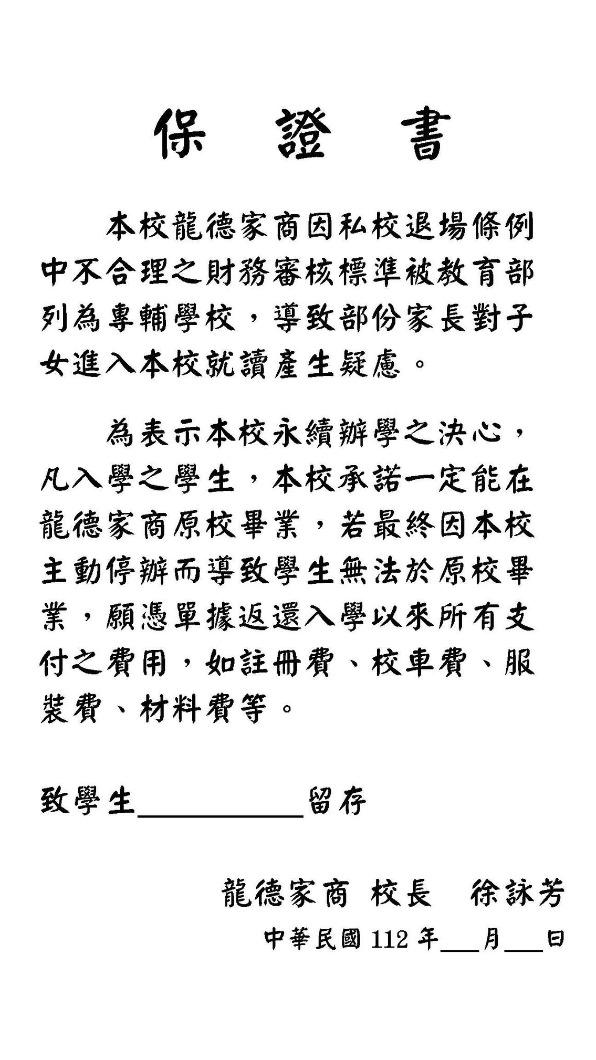 保 證 書
本校龍德家商因私校退場條例
中不合理之財務審核標準被教育部
列為專輔學校，導致部份家長對子
女進入本校就讀產生疑慮。
為表示本校永續辦學之決心，
凡入學之學生，本校承諾一定能在
龍德家商原校畢業，若最終因本校
主動停辦而導致學生無法於原校畢
業，願憑單據返還入學以來所有支
付之費用，如註冊費、校車費、服
裝費、材料費等。
致學生__________留存
龍德家商 校長 徐詠芳
中華民國 112 年___月___日